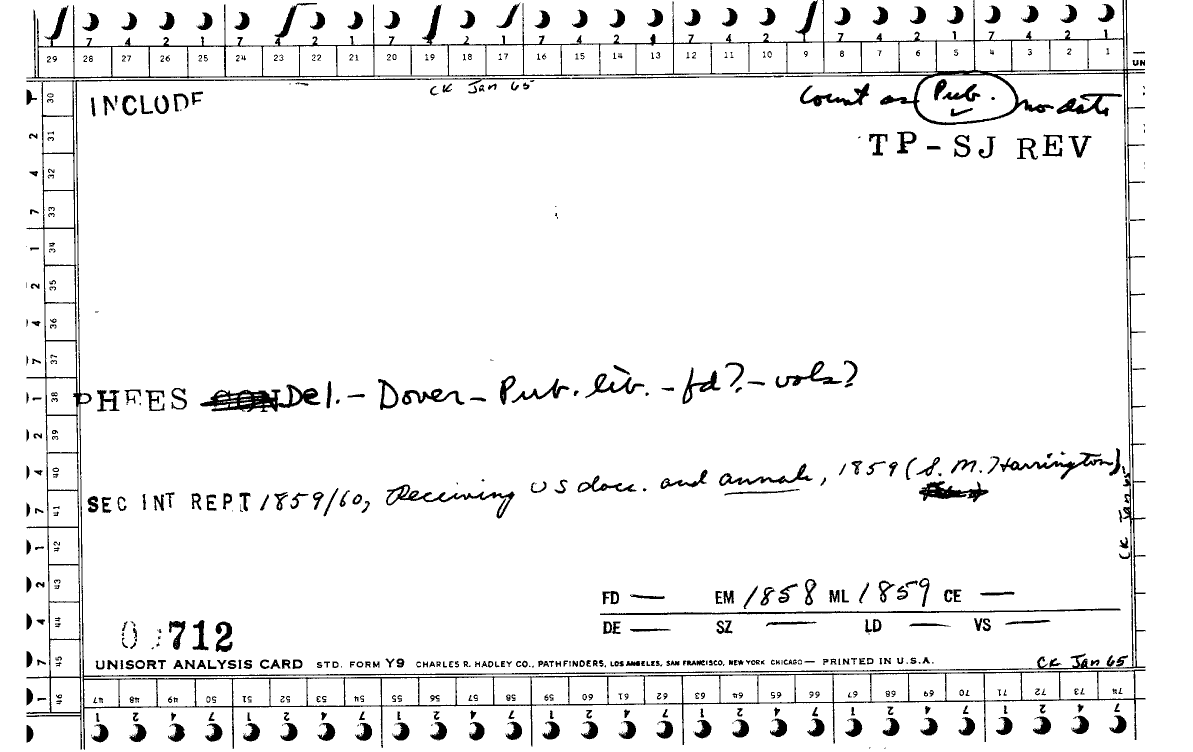 7 4 2 1 7 4 2 1 7 4 2 1 7 4 2 1 7 4 2 1 7 4 2 1 7 4 2 1
29 28 27 26 25 24 23 22 21 20 19 18 17 16 15 14 13 12 11 10 9 8 7 6 5 4 3 2 1
UN
INCLUDE CK Jan 65 Count as Pub. no date
TP-SJ REV
1 30
2 31
4 32
7 33
1 34
2 35
4 36
7 37
1 38
2 39
4 40
7 41
1 42
2 43
4 44
7 45
1 46
RHEES CON Del. - Dover - Pub. lib. - fd? - vols?
SEC INT REPT 1859/60, Receiving US docs. and annals, 1859 (S. M. Harrington).
CK Jan 65
FD — EM 1858 ML 1859 CE —
DE — SZ — LD — VS —
712
UNISORT ANALYSIS CARD STD. FORM Y9 CHARLES R. HADLEY CO., PATHFINDERS, LOS ANGELES, SAN FRANCISCO, NEW YORK CHICAGO — PRINTED IN U.S.A. CK Jan 65
47 48 49 50 51 52 53 54 55 56 57 58 59 60 61 62 63 64 65 66 67 68 69 70 71 72 73 74
1 2 4 7 1 2 4 7 1 2 4 7 1 2 4 7 1 2 4 7 1 2 4 7 1 2 4 7